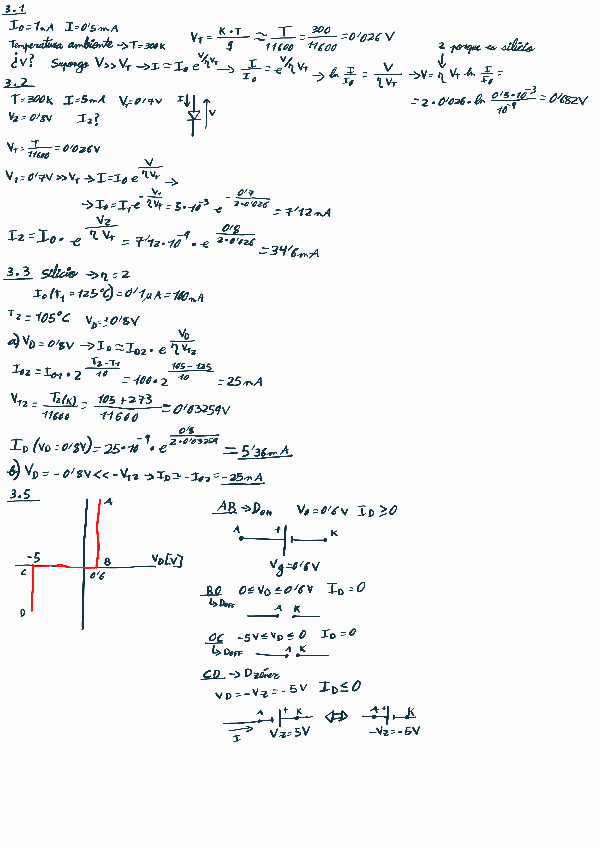 3.1
I₀=1nA I=0'5mA
Temperatura ambiente → T=300K
V_T = K·T/q ≈ T/11600 = 300/11600 = 0'026V
2 porque es silicio
¿V? Supongo V>>V_T → I = I₀ e^(V/ηV_T) → I/I₀ = e^(V/ηV_T) → ln I/I₀ = V/ηV_T → V = η V_T ln I/I₀ =
= 2·0'026·ln (0'5·10⁻³/10⁻⁹) = 0'682V
3.2
T=300K I=5mA V=0'7V I V
V₂=0'8V I₂?
V_T = T/11600 = 0'026V
V₁=0'7V>>V_T → I=I₀ e^(V/ηV_T) →
→ I₀=I₁e^(-V₁/ηV_T) = 5·10⁻³ · e^(-0'7/2·0'026) = 7'12nA
I₂=I₀· e^(V₂/ηV_T) = 7'12·10⁻⁹ · e^(0'8/2·0'026) = 34'6mA
3.3 Silicio → η=2
I₀(T₁=125°C)=0'1μA=100nA
T₂=105°C V_D=±0'8V
a) V_D=0'8V → I_D ≃ I_D2 · e^(V_D/ηV_T2)
I₀₂=I₀₁·2^((T₂-T₁)/10) = 100·2^((105-125)/10) = 25nA
V_T2 = T₂(K)/11600 = (105+273)/11600 = 0'03259V
I_D(V_D=0'8V)=25·10⁻⁹·e^(0'8/2·0'03259) = 5'36mA
b) V_D=-0'8V<<-V_T2 → I_D≃-I₀₂=-25nA
3.5
A
-5 B V_D[V]
C 0'6
D
AB → D_ON V_D=0'6V I_D≥0
A + K
Vg=0'6V
BO 0≤V_D≤0'6V I_D=0
↳ D_OFF A K
OC -5V≤V_D≤0 I_D=0
↳ D_OFF A K
CD → D zéner
V_D=-V_Z=-5V I_D≤0
A + K ⇔ A + K
I V_Z=5V -V_Z=-5V